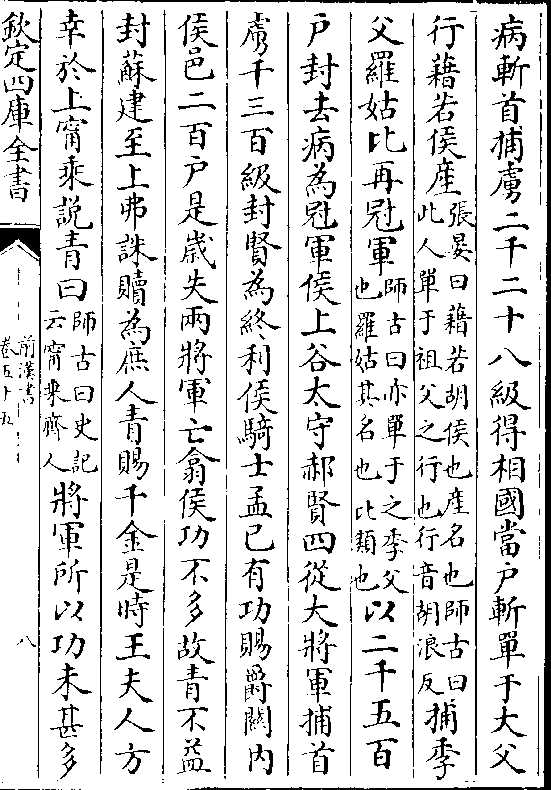 病斬首捕虜二千二十八級得相國當户斬單于大父
行藉若侯産張晏曰藉若胡侯也産名也師古曰此人單于祖父之行也行音胡浪反捕季
父羅姑比再冠軍師古曰亦單于之季父也羅姑其名也比類也以二千五百
户封去病為冠軍侯上谷太守郝賢四從大將軍捕首
虜千三百級封賢為終利侯騎士孟已有功賜爵關内
侯邑二百户是歲失兩將軍亡翕侯功不多故青不益
封蘇建至上弗誅贖為庶人青賜千金是時王夫人方
幸於上甯乘説青曰師古曰史記云甯乗齊人將軍所以功未甚多
欽定四庫全書
前漢書
卷五十五
八